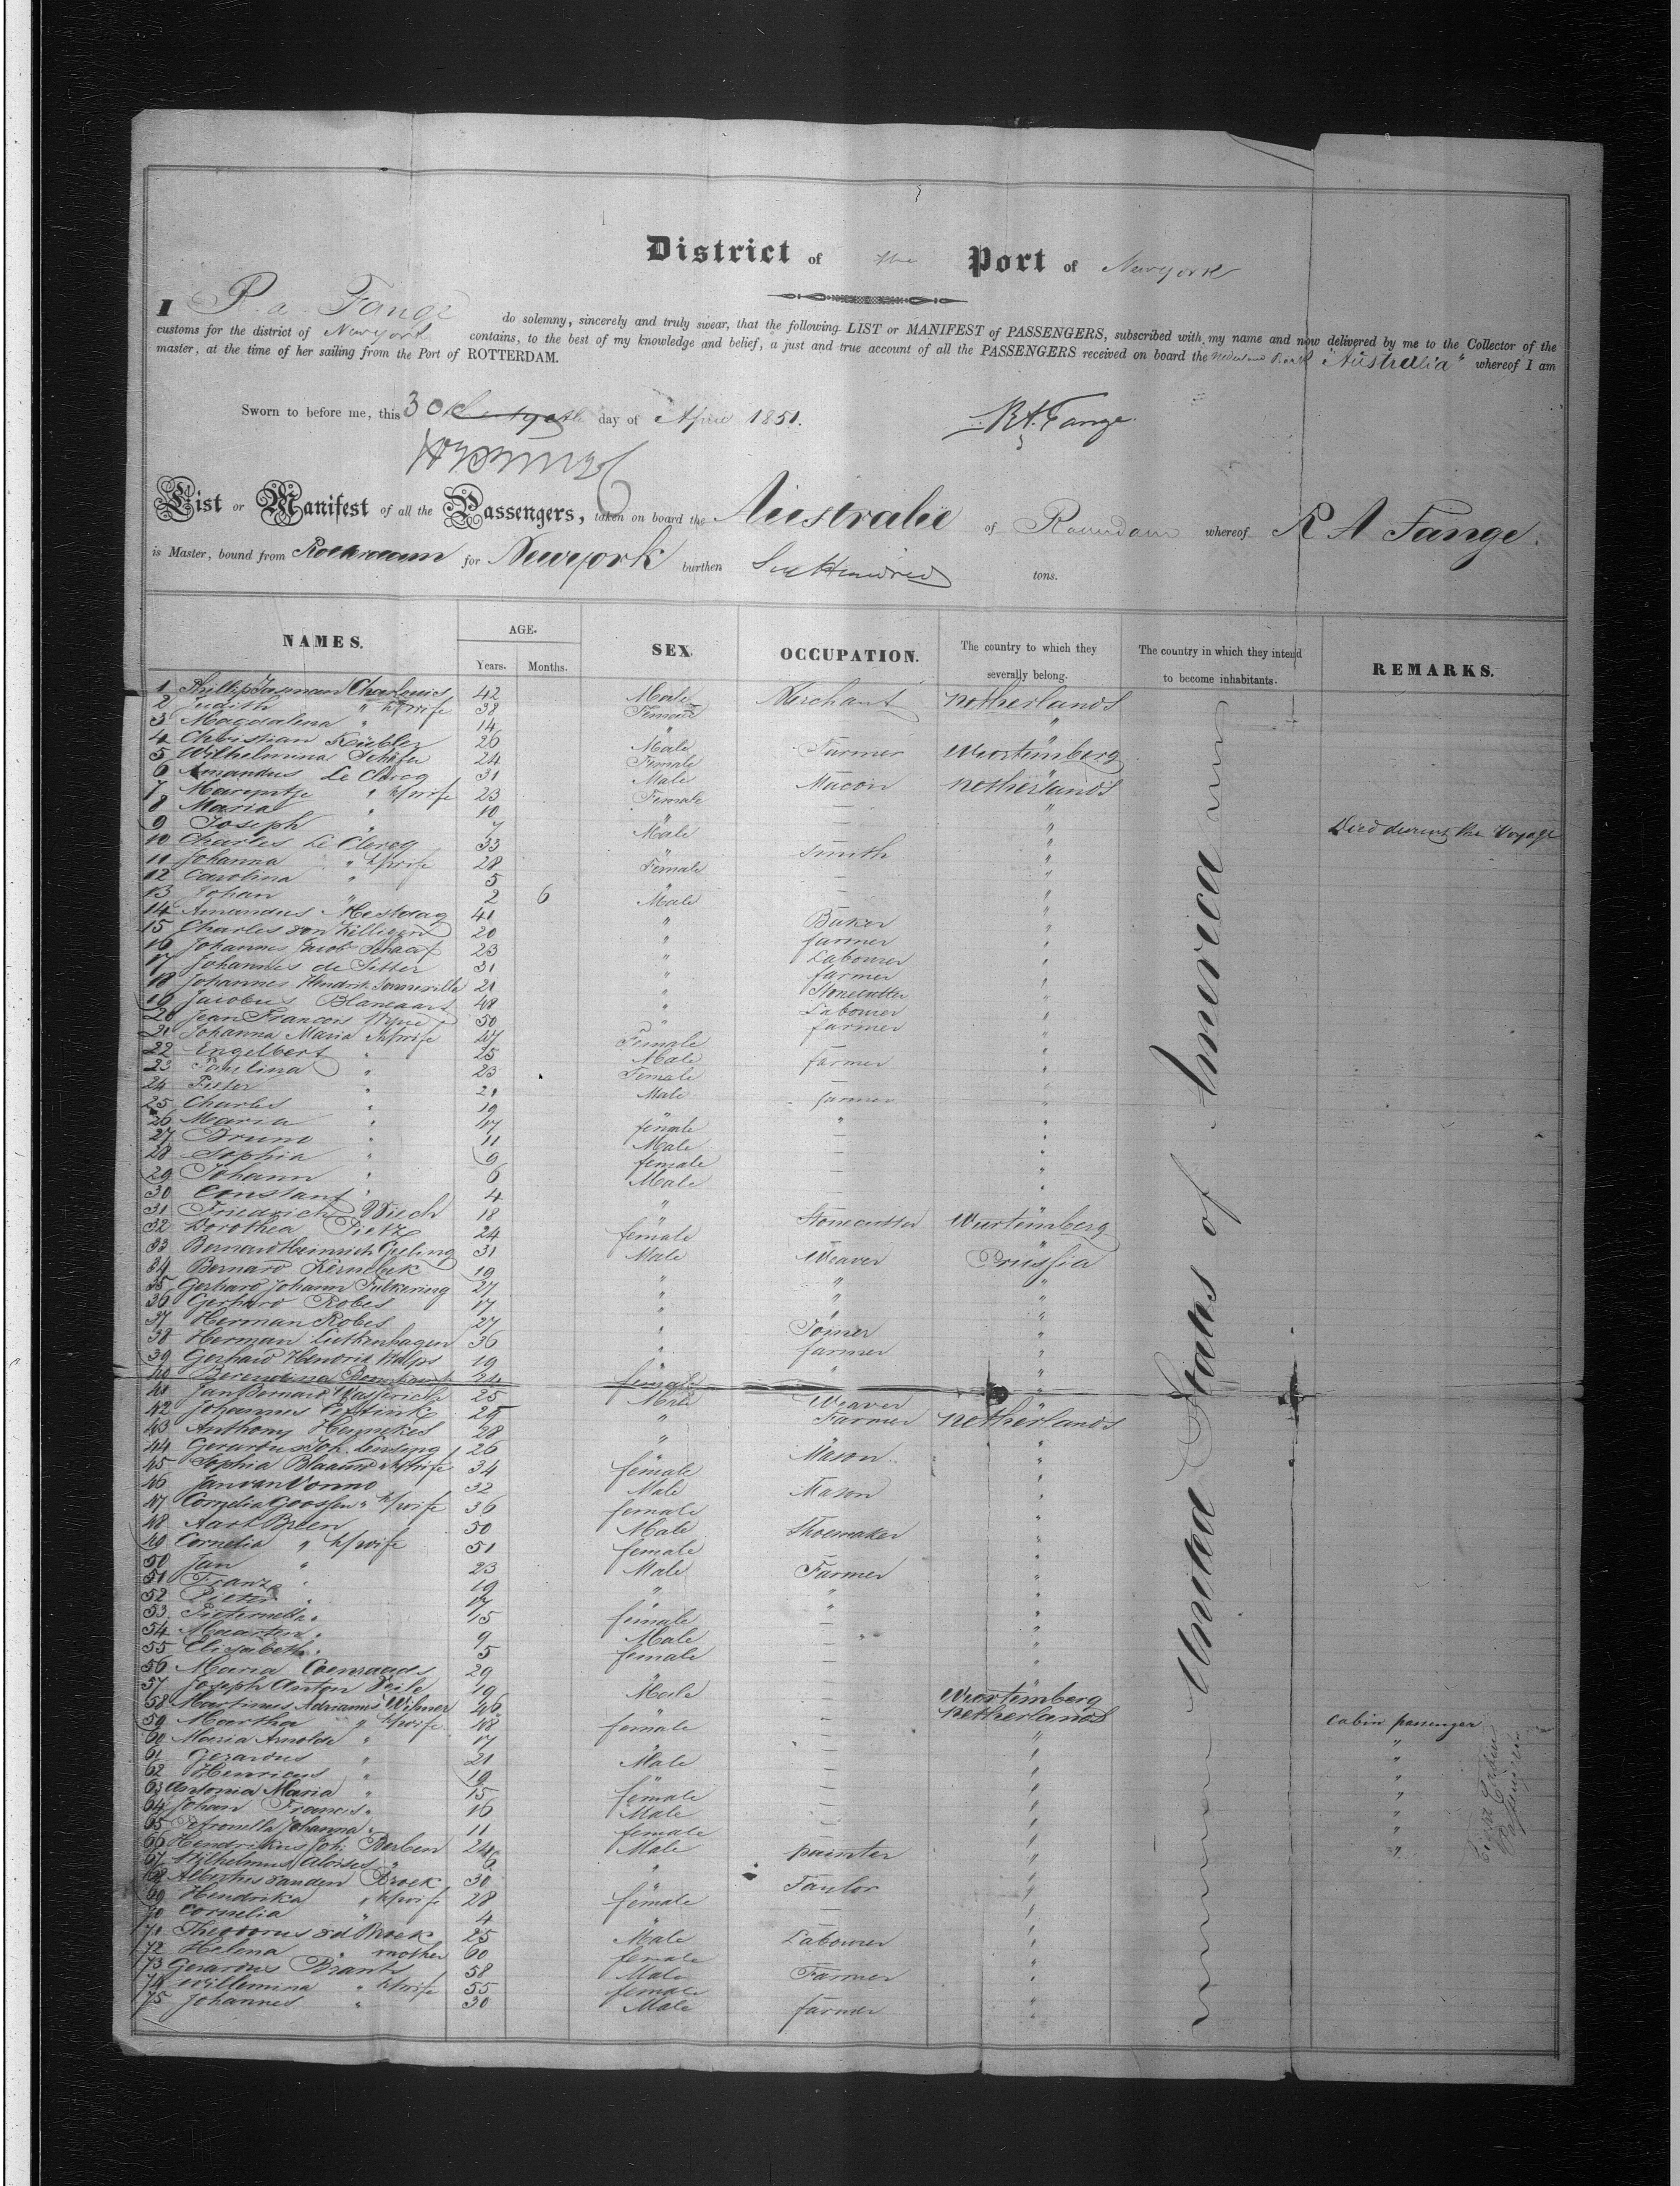 District of the Port of Newyork
I R. a. Fange do solemny, sincerely and truly swear, that the following LIST or MANIFEST of PASSENGERS, subscribed with my name and now delivered by me to the Collector of the
customs for the district of Newyork contains, to the best of my knowledge and belief, a just and true account of all the PASSENGERS received on board the "Australia" whereof I am
master, at the time of her sailing from the Port of ROTTERDAM.
Sworn to before me, this 30 day of April 1851. R A. Fange
List or Manifest of all the Passengers, taken on board the Australie of whereof R A Fange.
is Master, bound from for Newyork burthen Six Hundred tons.
NAMES. AGE. SEX. OCCUPATION. The country to which they severally belong. The country in which they intend to become inhabitants. REMARKS.
Years. Months.
United States of America
1 Phillip Charlouis 42 Male Merchant Netherlands
2 Judith " h/wife 38 Female "
3 Magdalena " 14 "
4 Christian Kübler 26 Male Farmer Wurtemberg
5 Wilhelmina Schäfer 24 Female "
6 Amandus Le Clercq 31 Male Macon Netherlands
7 " h/wife 23 Female "
8 Maria " 10 " — "
9 Joseph " 7 Male — " Died during the Voyage
10 Charles Le Clercq 33 " Smith "
11 Johanna " h/wife 28 Female — "
12 Carolina " 5 " — "
13 Johan " 2 6 Male — "
14 Amandus Mestdag 41 " Baker "
15 Charles 20 " farmer "
16 Johannes Jacob Schaaf 23 " Labourer "
17 Johannes de Sitter 31 " farmer "
18 Johannes Hendrik Sonneville 21 " Stonecutter "
19 Jacobus Blancaart 48 " Labourer "
20 Jean Francois 50 " farmer "
21 Johanna Maria h/wife 47 Female — "
22 Engelbert " 25 Male farmer "
23 Paulina " 23 Female — "
24 Pieter " 21 Male farmer "
25 Charles " 19 " "
26 Maria " 17 female — "
27 Bruno " 11 Male — "
28 Sophia " 9 female — "
29 Johann " 6 Male — "
30 Constant " 4 " — "
31 Friedrich Wiech 18 " Stonecutter Wurtemberg
32 Dorothea Pietz 24 female — "
33 Bernard Heinrich Gieling 31 Male Weaver Prussia
34 Bernard 19 " " "
35 Gerhard Johann 27 " " "
36 Gerhard Robes 17 " " "
37 Herman Robes 27 " Joiner "
38 Herman Liethenhagen 36 " farmer "
39 Gerhard Hendrik 19 " " "
40 24 female — "
41 Jan Bernard 25 Male Weaver "
42 Johannes 25 " Farmer Netherlands
43 Anthony Hennekes 28 " "
44 Gerardus Joh. 26 " Mason "
45 Sophia h/wife 34 female — "
46 Jan van Vonno 32 Male Mason "
47 Cornelia Goossen " h/wife 36 female — "
48 Aart Breen 50 Male Shoemaker "
49 Cornelia " h/wife 51 female — "
50 Jan " 23 Male Farmer "
51 Franz " 19 " " "
52 Pieter " 17 " " "
53 Pieternella " 15 female — "
54 Maarten " 9 Male — "
55 Elisabeth " 5 female — "
56 Maria Coenraads 29 " — "
57 Joseph Anton 19 Male — Wurtemberg
58 Martinus Adrianus 46 " — Netherlands cabin passenger
59 Martha " h/wife 48 female — " "
60 Maria Arnolda " 17 " — " "
61 Gerardus " 21 Male — " "
62 Henricus " 19 " — " "
63 Antonia Maria " 15 female — " "
64 Johan Francis " 16 Male — " "
65 Petronella Johanna " 11 female — " "
66 Hendrikus Joh. Berben 24 Male painter "
67 Wilhelmus Aloises " 6 " — "
68 van den Broek 30 " Taylor "
69 Hendrika " h/wife 28 female — "
70 Cornelia " 4 " — "
71 Theodorus v d Broek 25 Male Labourer "
72 Helena " mother 60 female — "
73 Gerardus Brants 58 Male Farmer "
74 Willemina " h/wife 55 female — "
75 Johannes " 30 Male farmer "